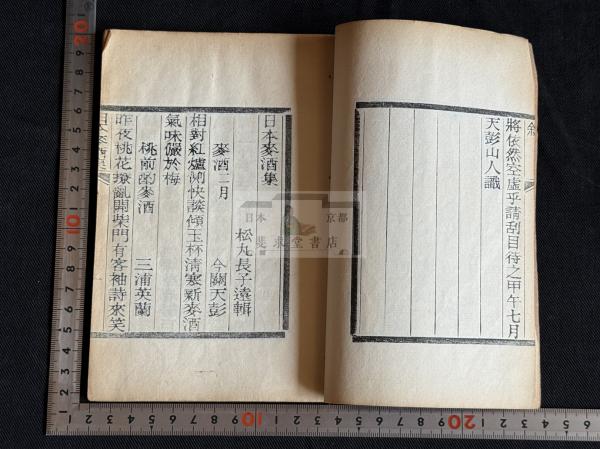 將依然空虛乎請刮目待之甲午七月
天彭山人識
日本麥酒集
松丸長子遠輯
麥酒二月
今關天彭
相對紅爐測快談傾玉杯清寒新麥酒
氣味儼於梅
桃前酌麥酒
三浦英蘭
昨夜桃花撩亂開柴門有客袖詩來笑
日本麥酒集
日本
京都
斐求堂書店